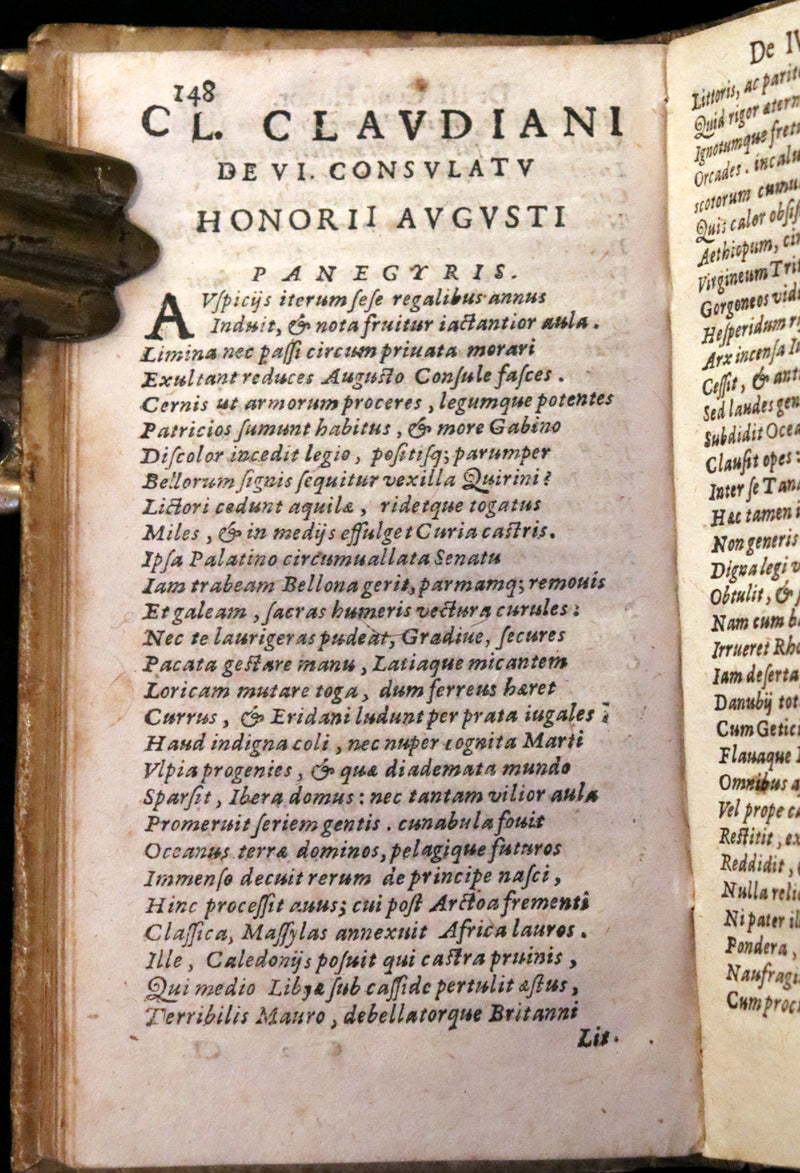 148
CL. CLAVDIANI
DE VI. CONSVLATV
HONORII AVGVSTI
PANEGYRIS.
AVſpicijs iterum ſeſe regalibus annus
Induit, & nota fruitur iactantior aula.
Limina nec paſſi circum priuata morari
Exultant reduces Auguſto Conſule faſces.
Cernis ut armorum proceres, legumque potentes
Patricios ſumunt habitus, & more Gabino
Diſcolor incedit legio, poſitiſq; parumper
Bellorum ſignis ſequitur vexilla Quirini?
Lictori cedunt aquilæ, ridetque togatus
Miles, & in medijs effulget Curia caſtris.
Ipſa Palatino circumuallata Senatu
Iam trabeam Bellona gerit, parmamq; remouis
Et galeam, ſacras humeris vectura curules:
Nec te laurigeras pudeat, Gradiue, ſecures
Pacata geſtare manu, Latiaque micantem
Loricam mutare toga, dum ferreus hæret
Currus, & Eridani ludunt per prata iugales;
Haud indigna coli, nec nuper cognita Marti
Vlpia progenies, & quæ diademata mundo
Sparſit, Ibera domus: nec tantam vilior aula
Promeruit ſeriem gentis. cunabula fouit
Oceanus. terræ dominos, pelagique futuros
Immenſo decuit rerum de principe naſci,
Hinc proceſſit auus; cui poſt Arctoa frementi
Claſſica, Maſſylas annexuit Africa lauros.
Ille, Caledonijs poſuit qui caſtra pruinis,
Qui medio Libyæ ſub caſſide pertulit æſtus,
Terribilis Mauro, debellatorque Britanni
Lit.
De
Littoris, ac
Quid rigor
Ignotumque
Orcades. incal
scotorum
Quis calor
Aethiopum,
Virgineum
Gorgoneos
Heſperidum
Arx incenſa
Ceſſit, &
Sed laudes
Subdidit
Clauſit opes
Inter ſe
Hæc tamen
Non generis
Digna legi
Obtulit, &
Nam cum
Irrueret
Iam deſerta
Danubij tot
Cum Getici
Flauaque
Omnibus
Vel prope
Reſtitit, ex
Reddidit,
Nulla
Ni pater
Pondera,
Naufragi
Cum